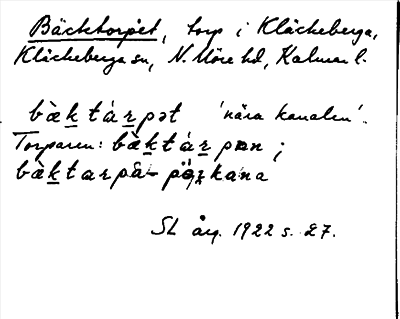 Bäcktorpet, torp i Kläckeberga,
Kläckeberga sn, N. Möre hd, Kalmar l.
bæ̀ktárpət 'nära kanalen'.
Torparen: bæ̀ktárpən;
bæ̀ktarpa-
SL årg. 1922 s. 27.